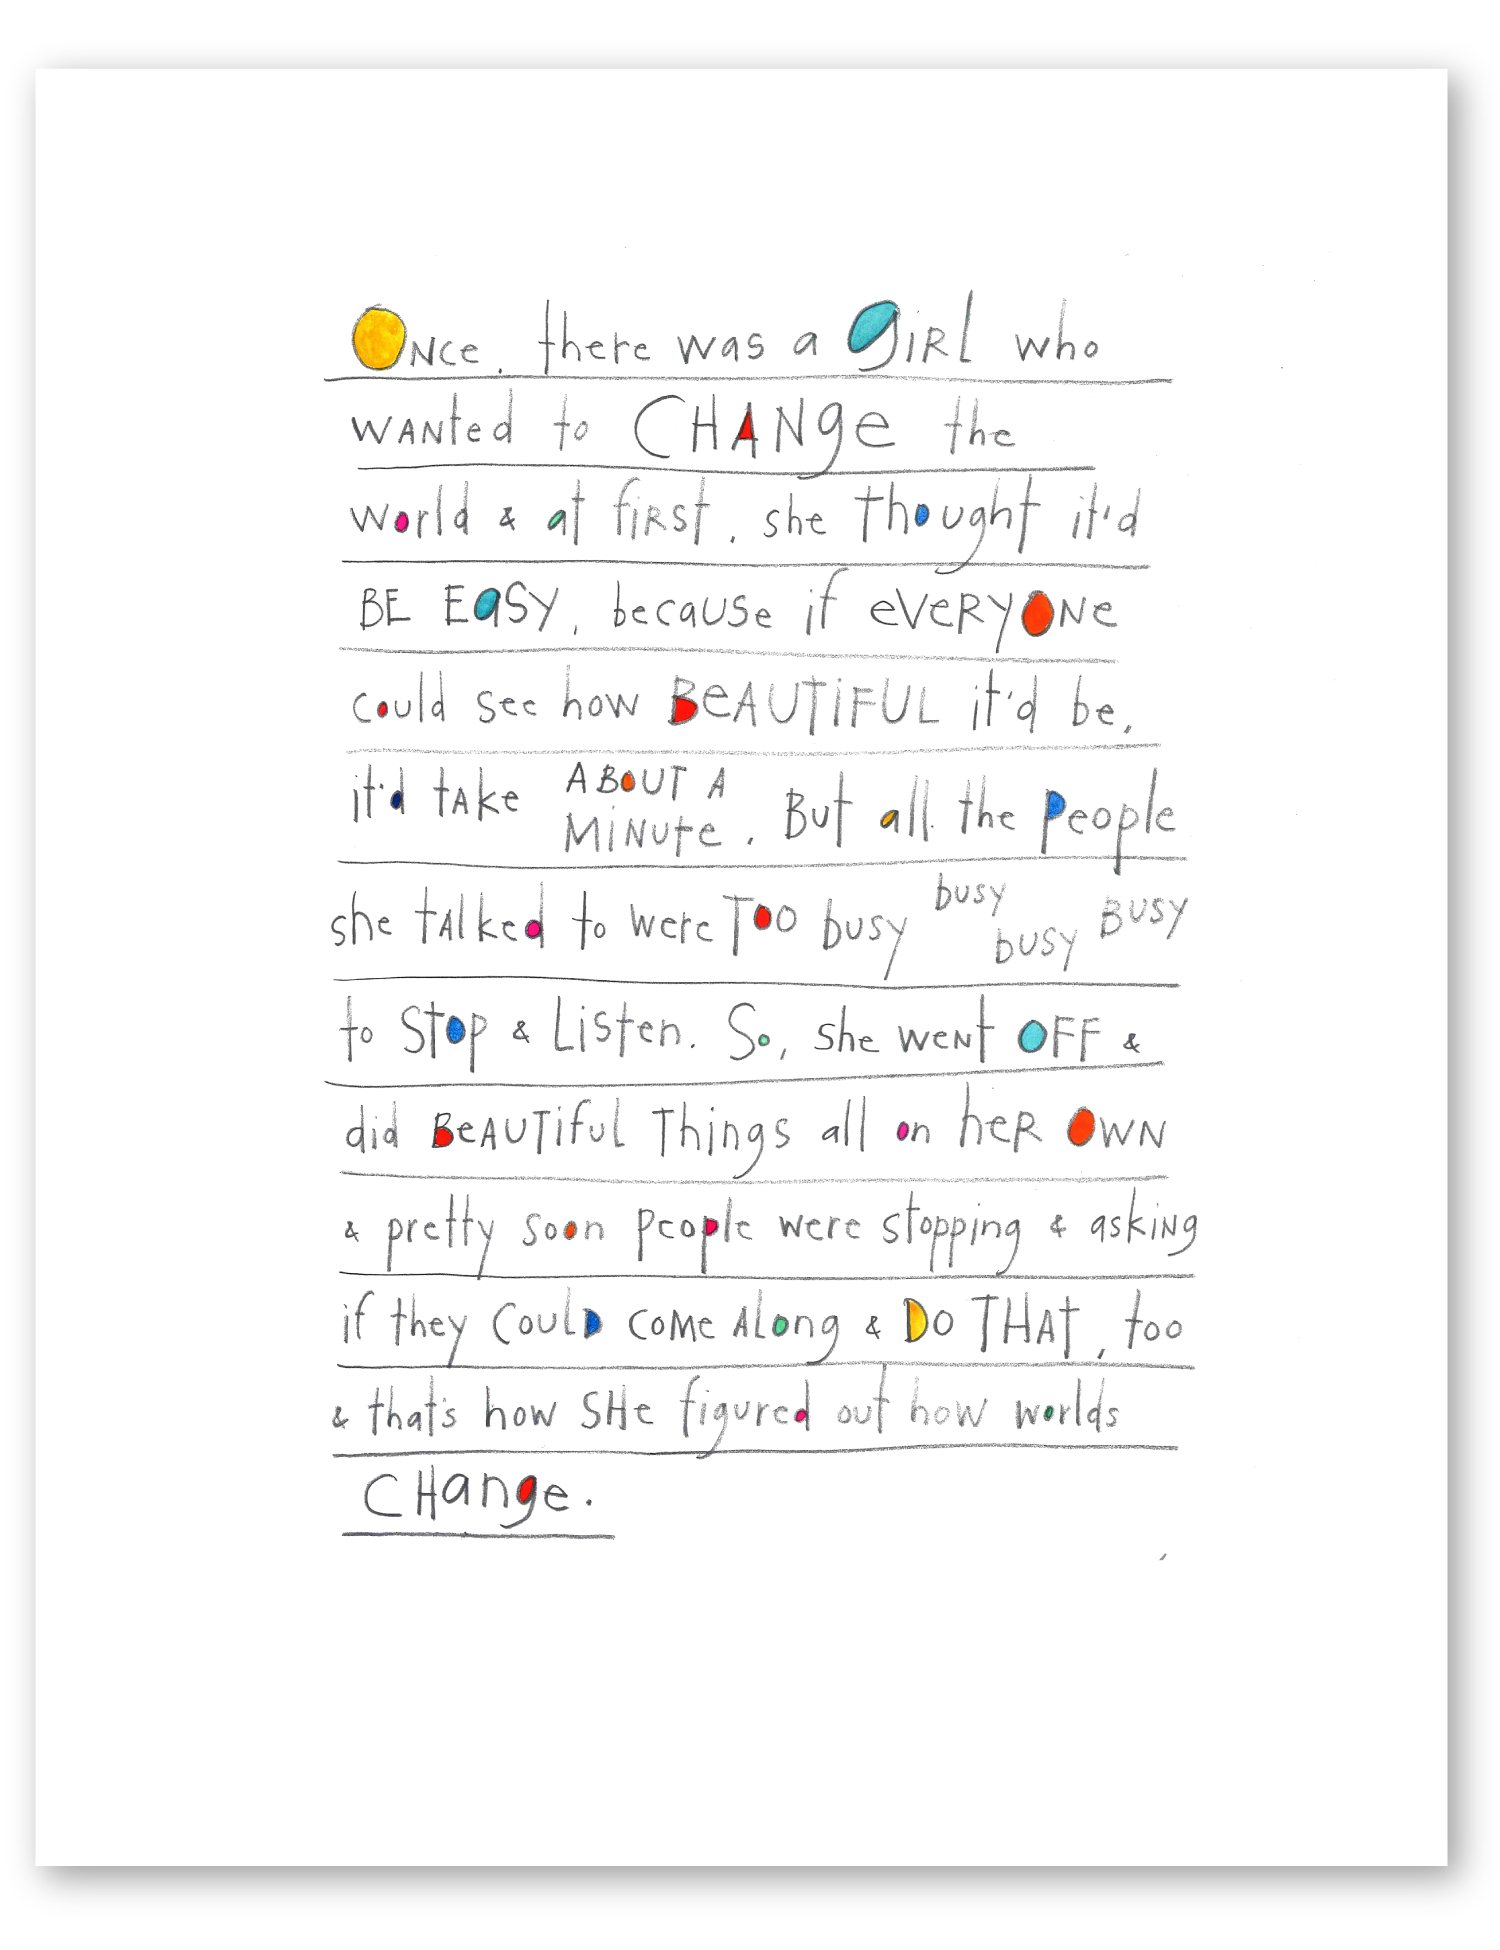 ONce, there was a giRL who
WANted to CHANge the
world & at fiRST, she thought it'd
BE EaSY, because if eVeRYONe
could see how BeAUTiFUL it'd be,
it'd tAke ABOUT A MiNUte. But all the people
she tAlked to were TOO busy busy busy BUSY
to Stop & Listen. So, She weNt OFF &
did BeAUTiful Things all on heR OWN
& pretty soon people were stopping & askiNg
if they COULD COMe ALong & DO THAt, too
& that's how SHe figured out how worlds
CHange.